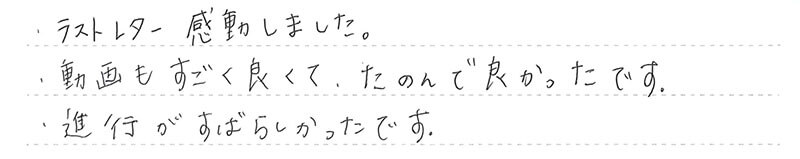 ・ラストレター感動しました。
・動画もすごく良くて、たのんで良かったです.
・進行がすばらしかったです.